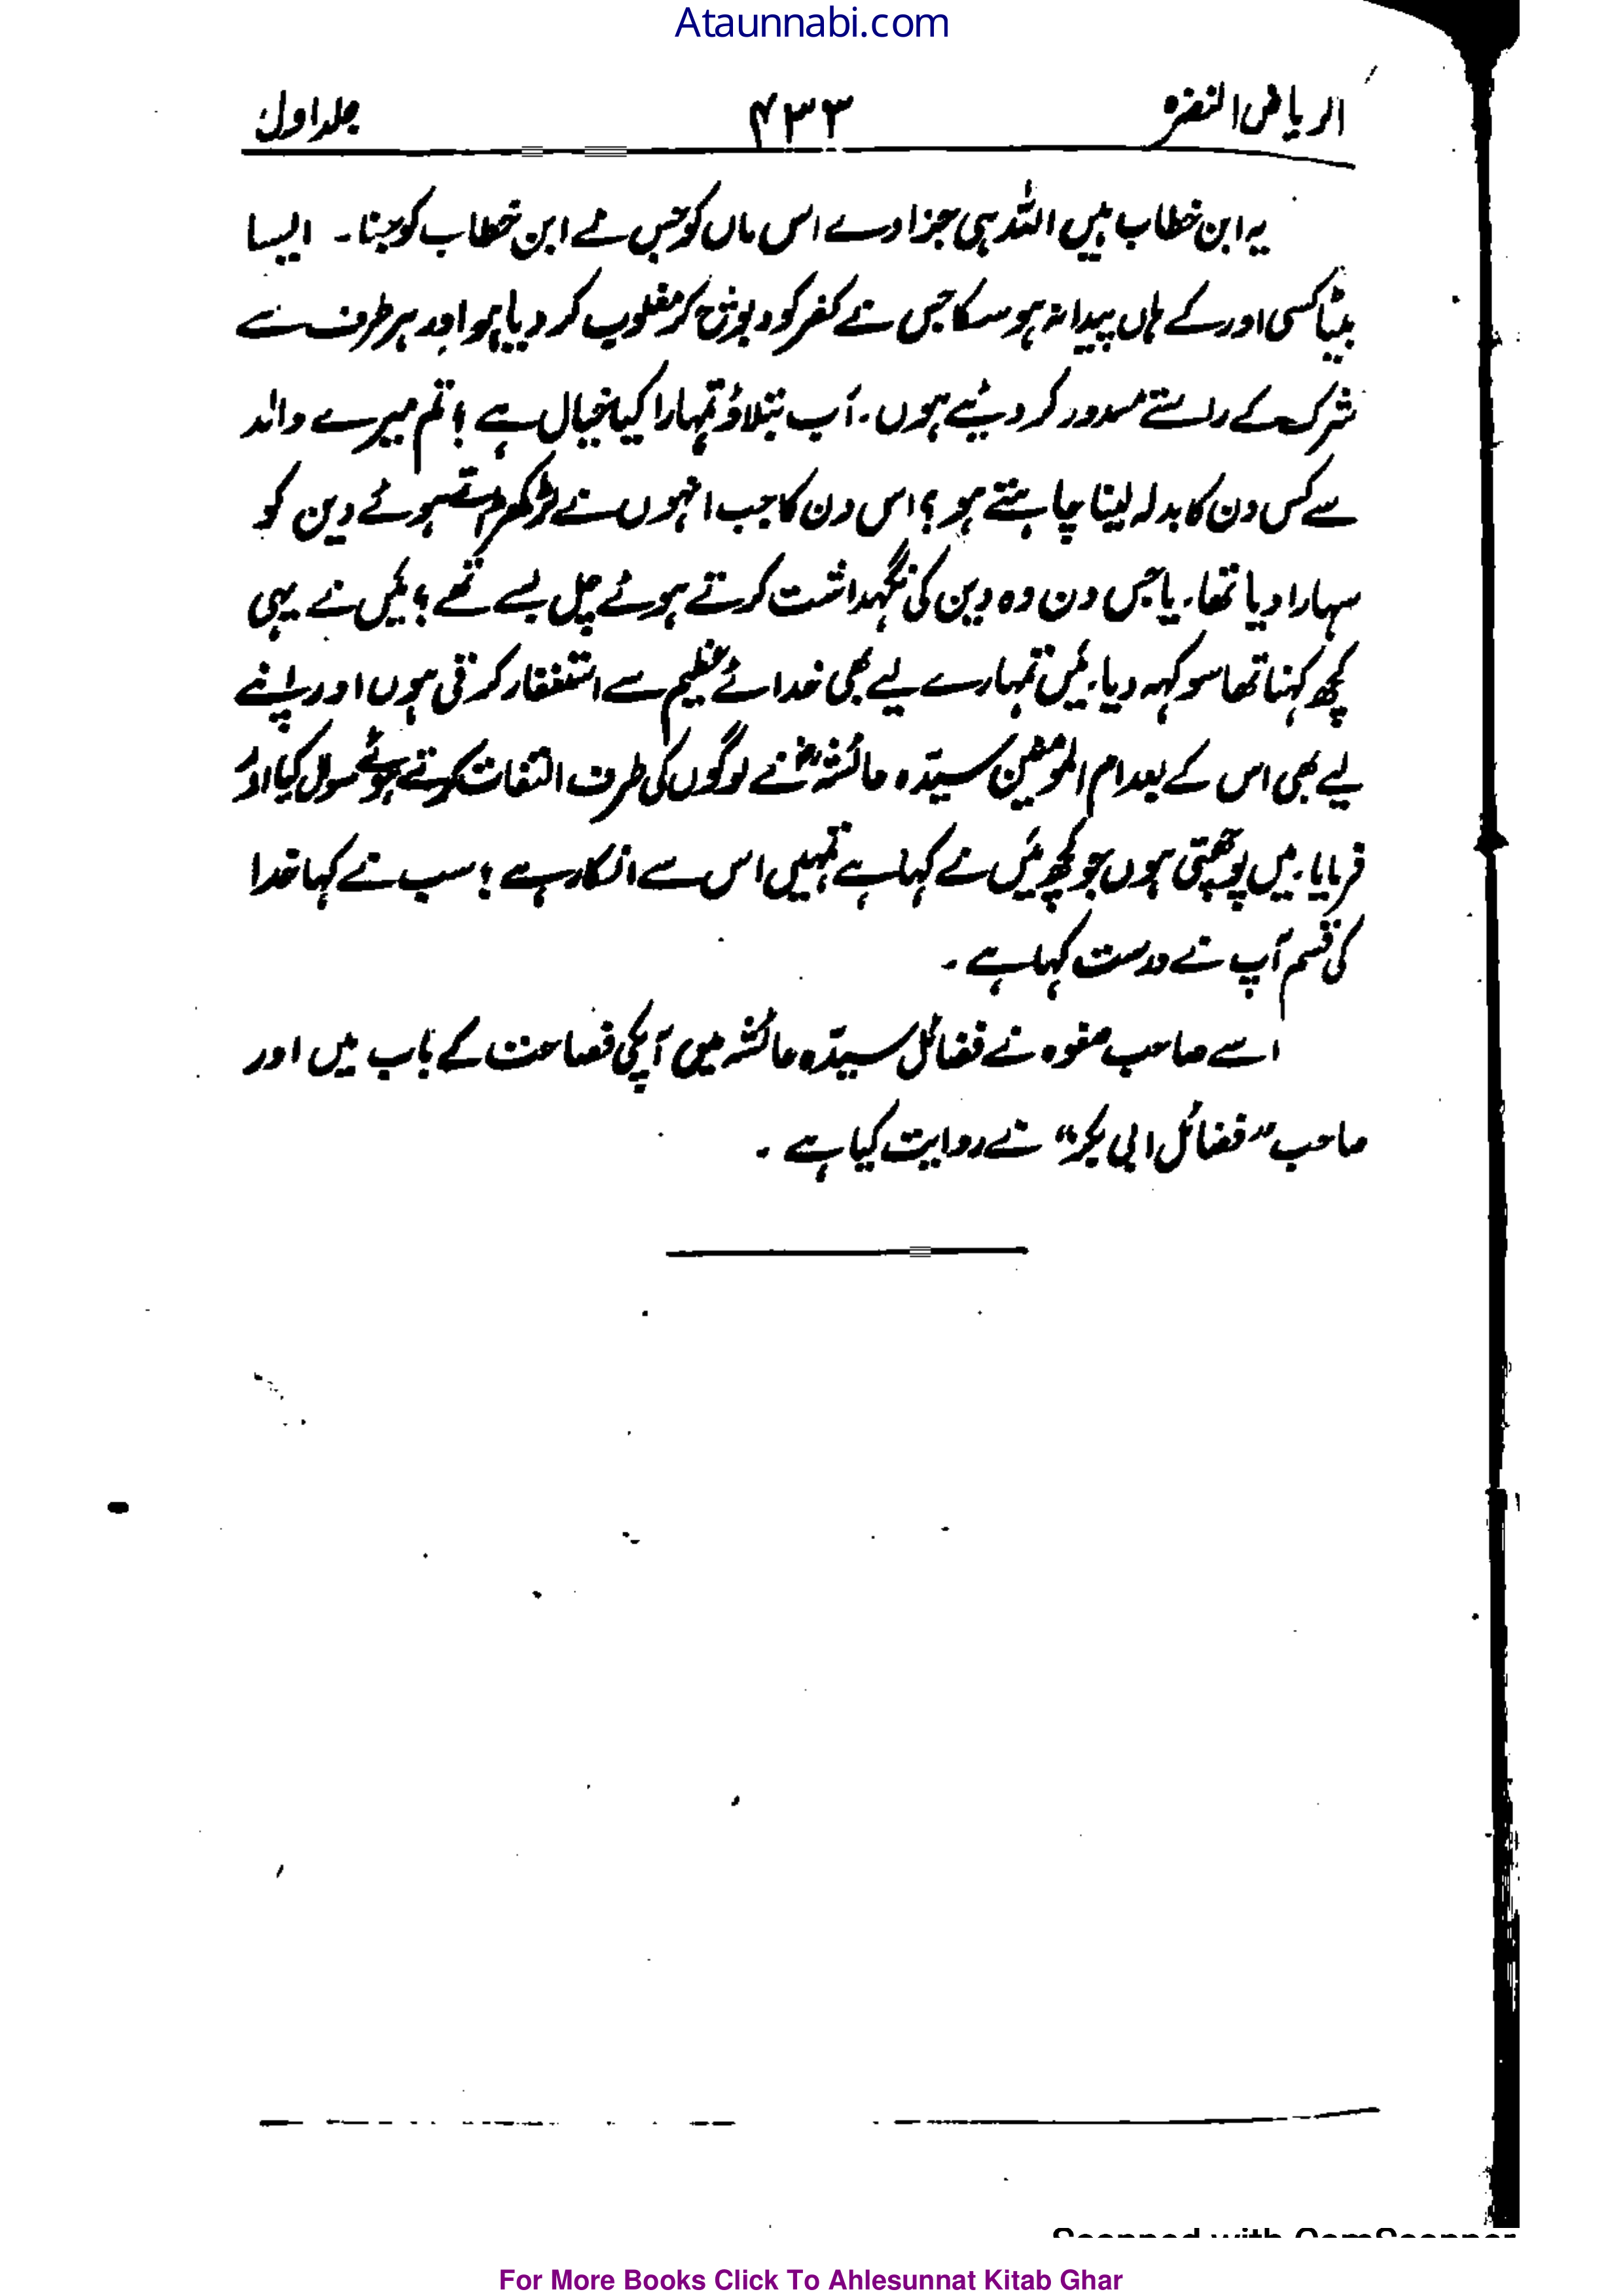 Ataunnabi.com
الریاض النضرہ ۴۳۳ جلد اول
یہ ابن خطاب ہیں اللہ ہی جزا دے اس ماں کو جس نے ابن خطاب کو جنا۔ ایسا
بیٹا کسی اور کے ہاں پیدا نہ ہو سکا جس نے کفر کو دبوچ کر مغلوب کر دیا ہو اور ہر طرف سے
شرک کے راستے مسدود کر دیئے ہوں۔ اَب بتلاؤ تمہارا کیا خیال ہے؟ تم میرے والد
سے کس دن کا بدلہ لینا چاہتے ہو؟ اس دن کا جب انہوں نے لڑکھڑاتے ہوئے دین کو
سہارا دیا تھا۔ یا جس دن وہ دین کی نگہداشت کرتے ہوئے چل بسے تھے؟ میَں نے یہی
کچھ کہنا تھا سو کہہ دیا۔ میَں تمہارے لیے بھی خدائے عظیم سے استغفار کرتی ہوں اور اپنے
لیے بھی اس کے بعد ام المؤمنین سیدّہ عائشہؓ نے لوگوں کی طرف التفات کرتے ہوئے سوال کیا اور
فرمایا۔ میں پوچھتی ہوں جو کچھ میَں نے کہا ہے تمہیں اس سے انکار ہے؟ سب نے کہا خدا
کی قسم آپ نے درست کہا ہے۔
اسے صاحب صفوہ نے فضائل سیدّہ عائشہ میں آپکی فصاحت کے باب میں اور
صاحب ”فضائل ابی بکر“ نے روایت کیا ہے۔
Scanned with CamScanner
For More Books Click To Ahlesunnat Kitab Ghar